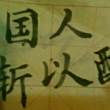 国人
斩以